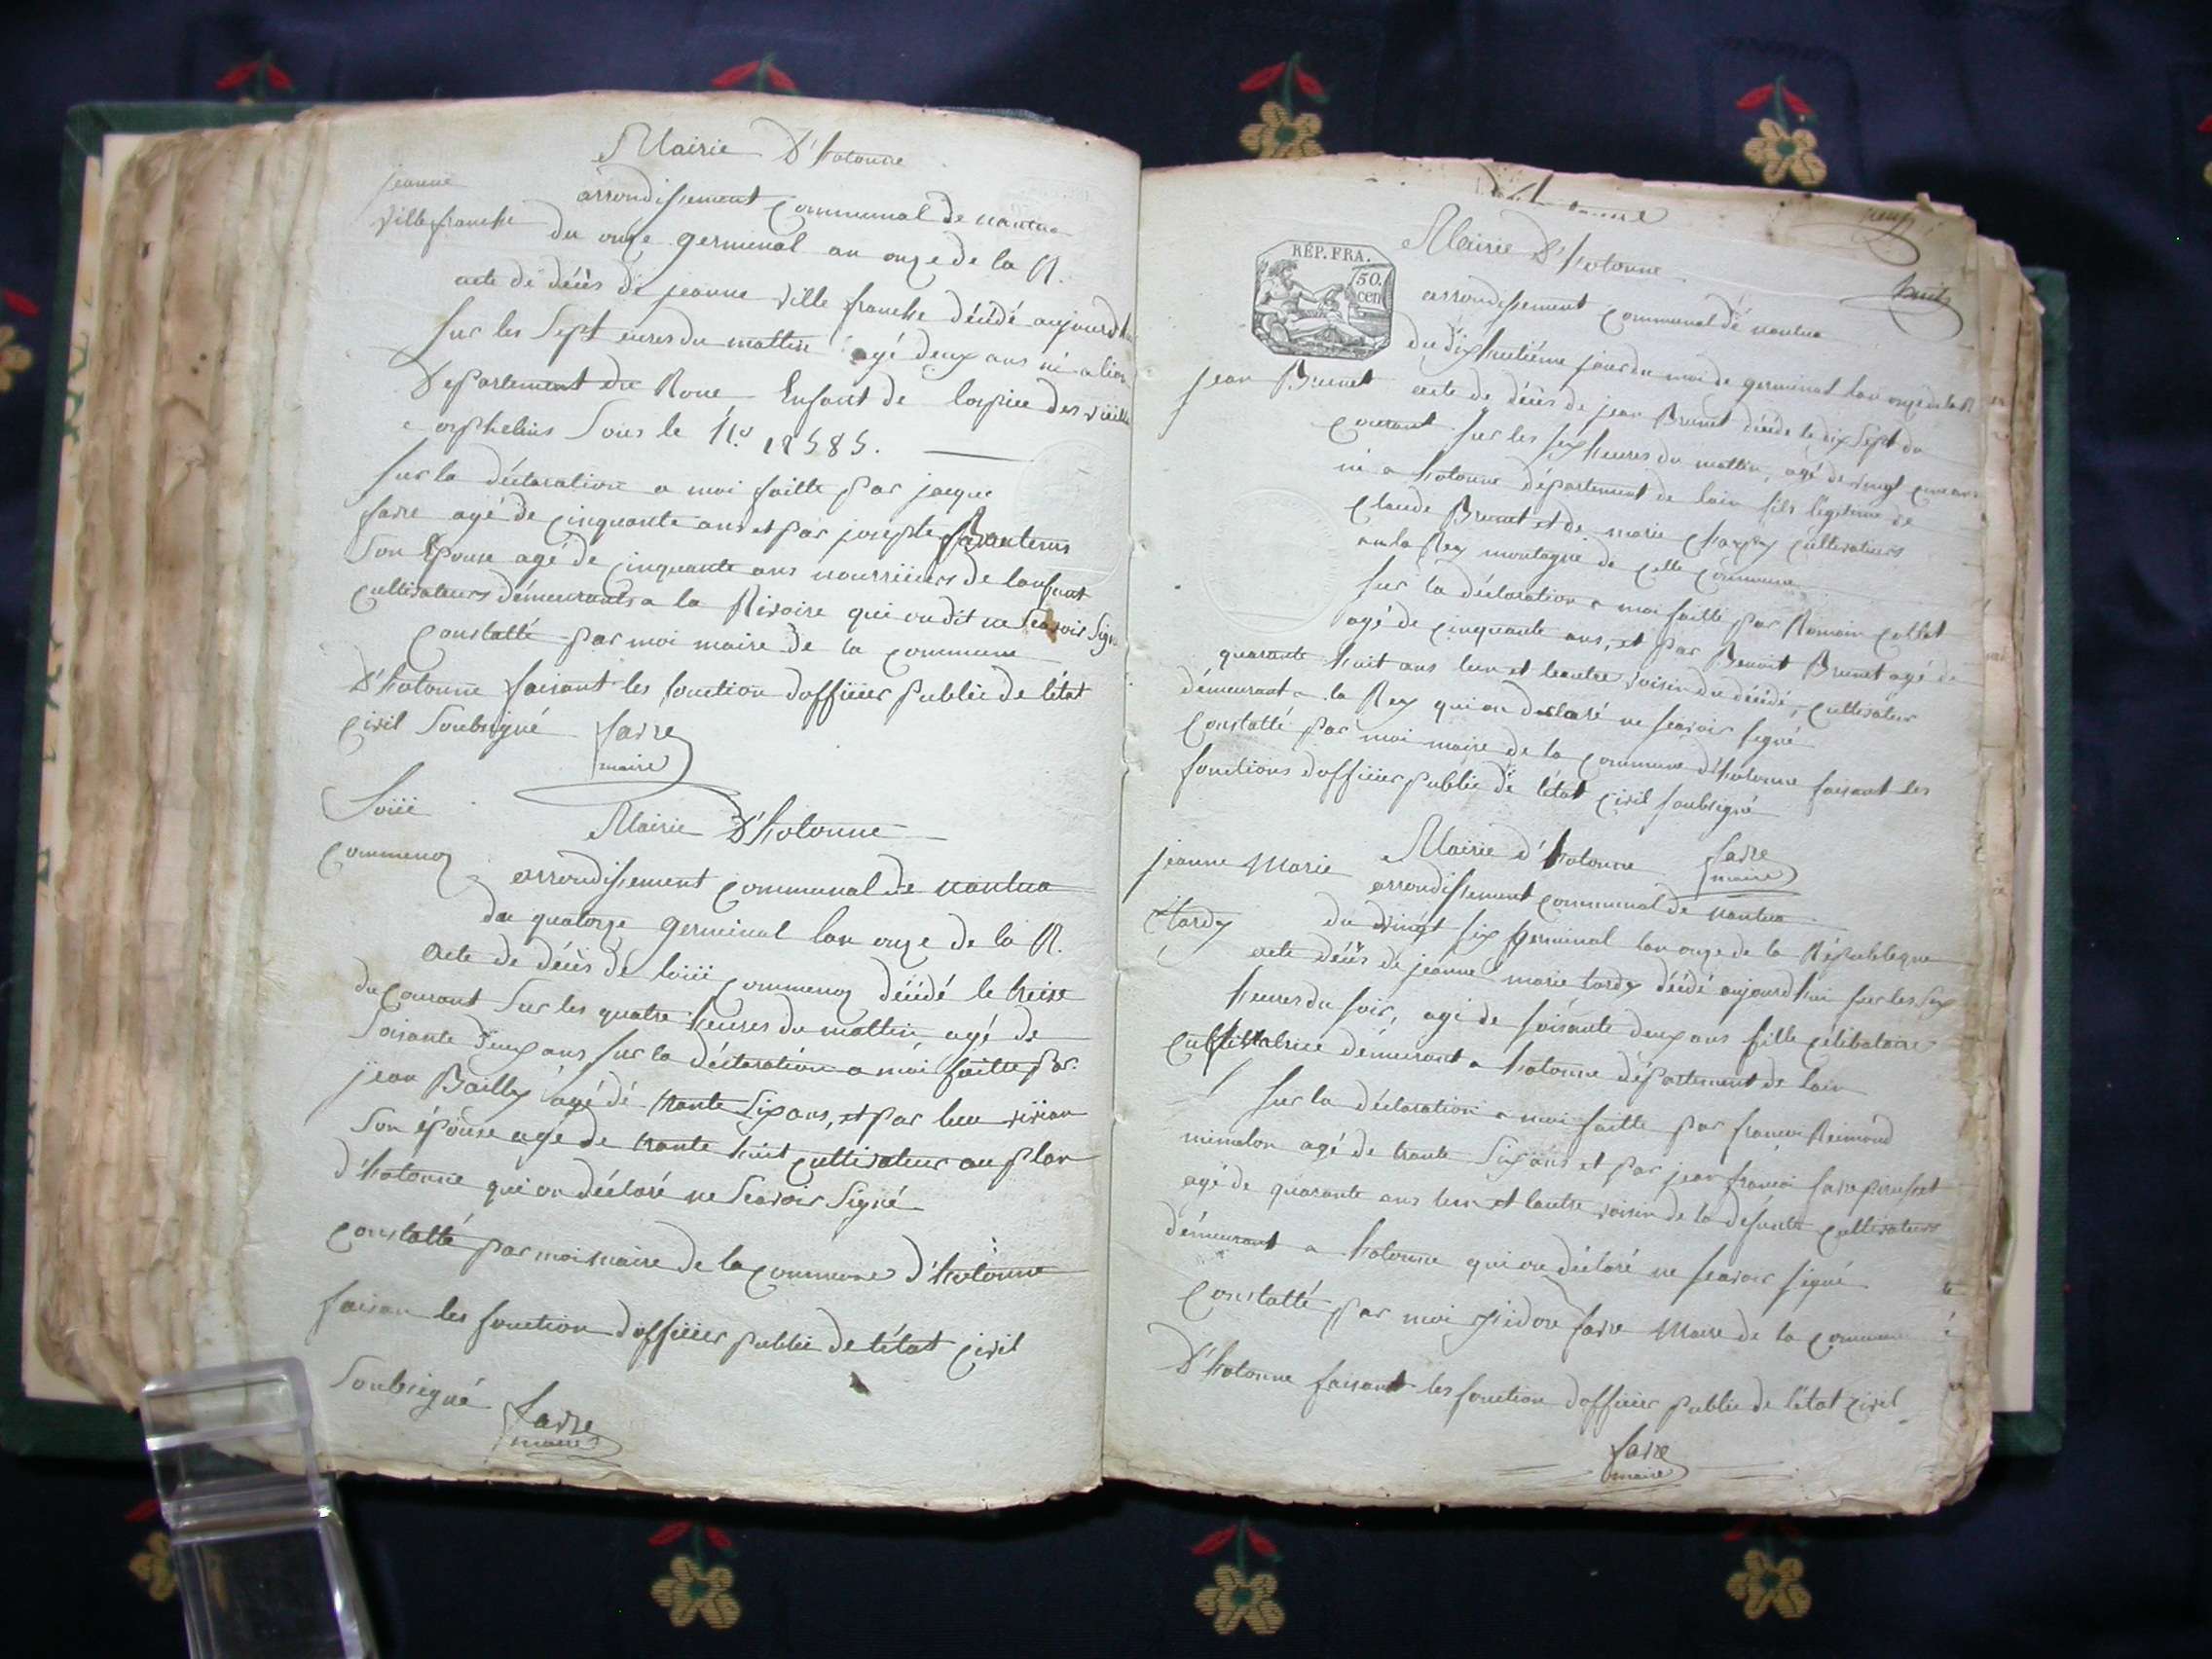 Mairie D'hotonne
jeanne
villefranche
arrondissement communal de nantua
du onze germinal an onze de la R.
acte de décès de jeanne ville franche décédé aujourdhui
sur les sept eures du mattin agé deux ans né a lion
Departement du Rone Enfant de lospice des vieille
e orphelins sous le N.o 12585.
sur la déclaration a moi faitte par jacque
favre agé de cinquante ans et par josepte
son Epouse agé de cinquante ans nourriciers de lenfant
cultivateurs démeurants a la Rivoire qui on dit ne scavoir sign
constatté par moi maire de la commune
D'hotonne faisant les fonction dofficier public de létat
civil soubsigné favre
maire
Loüi
commenoz
Mairie D'hotonne
arrondissement communal de nantua
du quatorze germinal lan onze de la R.
acte de décès de loüi commenoz décédé le treize
du courant sur les quatre heures du mattin agé de
soisante deux ans sur la déclaration a moi faitte par
jean Bailly agé de trante six ans, et par
son épouse agé de trante huit cultivateur au plan
d'hotonne qui on déclaré ne scavoir signé
constatté par moi maire de la commune d'hotonne
faisan les fonction dofficier public de létat civil
soubsigné favre
maire
neuf
huit
RÉP. FRA.
50.
cen
Mairie D'hotonne
arrondissement communal de nantua
du dixhuitiéme jour du moi de germinal lan onze de la R
jean Brunet
acte de décès de jean Brunet décédé le dix sept du
courant sur les six heures du mattin, agé de vingt cinc ans
né a hotonne département de lain fils légitime de
claude Brunet et de marie cultivateurs
a la Rey montagne de cette commune
sur la déclaration a moi faitte par Romain collet
agé de cinquante ans, et par Benoit Brunet agé de
quarante huit ans lun et leautre voisin du décédé, cultivateur
démeurant a la Rey qui on déclaré ne scavoir signé
constatté par moi maire de la commune d'hotonne faisant les
fonctions dofficier public de létat civil soubsigné
favre
maire
jeanne Marie
tardy
Mairie d'hotonne
arrondissement communal de nantua
du vingt six germinal lan onze de la République
acte décès de jeanne marie tardy décédé aujourdhui sur les six
heures du soir, agé de soisante deux ans fille célibataire
cultivatrice démeurant a hotonne département de lain
sur la déclaration a moi faitte par francoi Reimond
agé de trante six ans et par jean francoi favre
agé de quarante ans lun et lautre voisin de la defunte cultivateurs
démeurant a hotonne qui on déclaré ne scavoir signé
constatté par moi isidore favre Maire de la commune
D'hotonne faisant les fonction dofficier public de létat civil
favre
maire